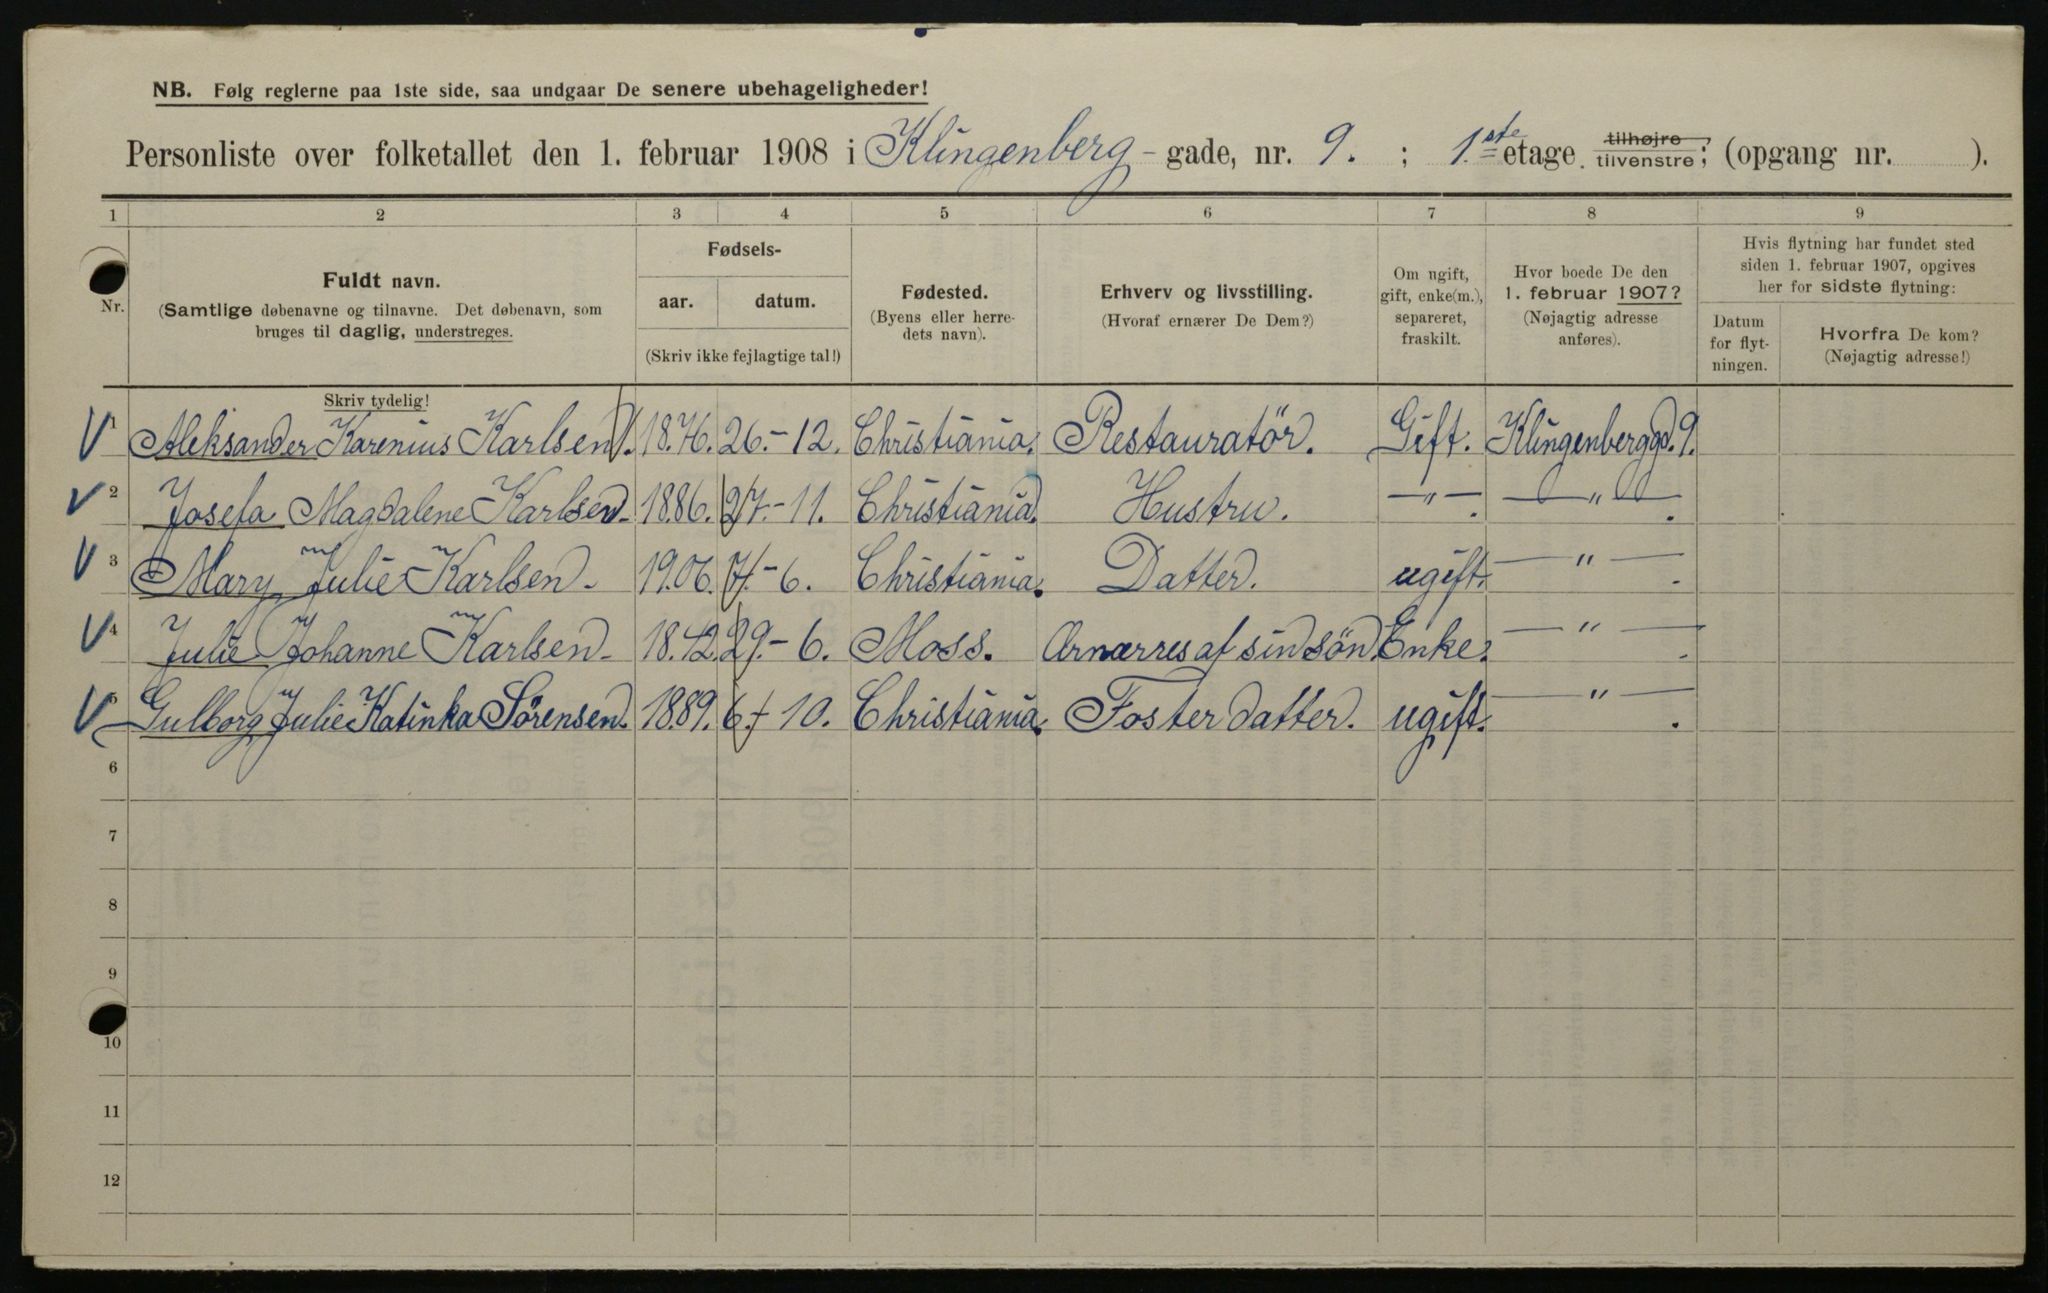 NB. Følg reglerne paa 1ste side, saa undgaar De senere ubehageligheder!
Personliste over folketallet den 1. februar 1908 i Klingenberg - gade, nr. 9. ; 1.ste etage. tilhøjre tilvenstre; (opgang nr. ).
1 2 3 4 5 6 7 8 9
Nr.
Fuldt navn.
(Samtlige døbenavne og tilnavne. Det døbenavn, som
bruges til daglig, understreges.
Skriv tydelig!
Fødsels-
aar. datum.
(Skriv ikke fejlagtige tal!)
Fødested.
(Byens eller herre-
dets navn).
Erhverv og livsstilling.
(Hvoraf ernærer De Dem?)
Om ugift,
gift, enke(m.),
separeret,
fraskilt.
Hvor boede De den
1. februar 1907?
(Nøjagtig adresse
anføres).
Hvis flytning har fundet sted
siden 1. februar 1907, opgives
her for sidste flytning:
Datum
for flyt-
ningen.
Hvorfra De kom?
(Nøjagtig adresse!)
1 Aleksander Karenius Karlsen. 1876. 26.-12. Christiania. Restauratör. Gift. Klingenberggd. 9.
2 Josefa Magdalene Karlsen. 1886. 27.-11. Christiania. Hustru. —"—. —"—.
3 Mary Julie Karlsen. 1906. 7.-6. Christiania. Datter. ugift. —"—.
4 Julie Johanne Karlsen. 1842. 29.-6. Moss. Ærnærres af sin sön. Enke. —"—.
5 Gulborg Julie Katinka Sörensen. 1889. 6.-10. Christiania. Foster datter. ugift. —"—.
6
7
8
9
10
11
12